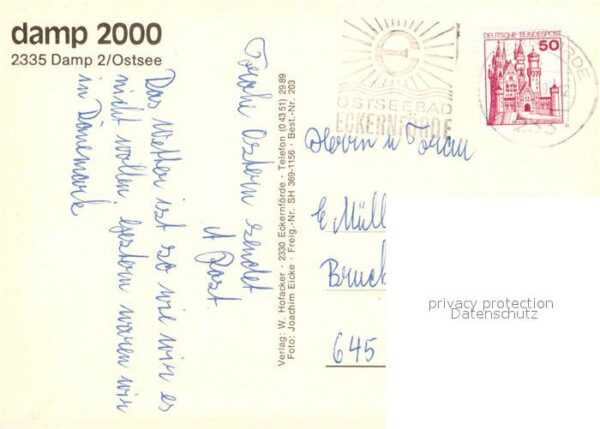 damp 2000
2335 Damp 2/Ostsee
Das Wetter ist so wie wir es
nicht wollen. Gestern waren wir
in Dänemark
Frohe Ostern sendet
A Post.
Verlag: W. Hofacker · 2330 Eckernförde · Telefon (0 43 51) 29 89
Foto: Joachim Eicke · Freig.-Nr. SH 369-1156 · Best.-Nr. 203
OSTSEEBAD
ECKERNFÖRDE
DEUTSCHE BUNDESPOST
50
Herrn u Frau
E Müll
Bruck
645
privacy protection
Datenschutz